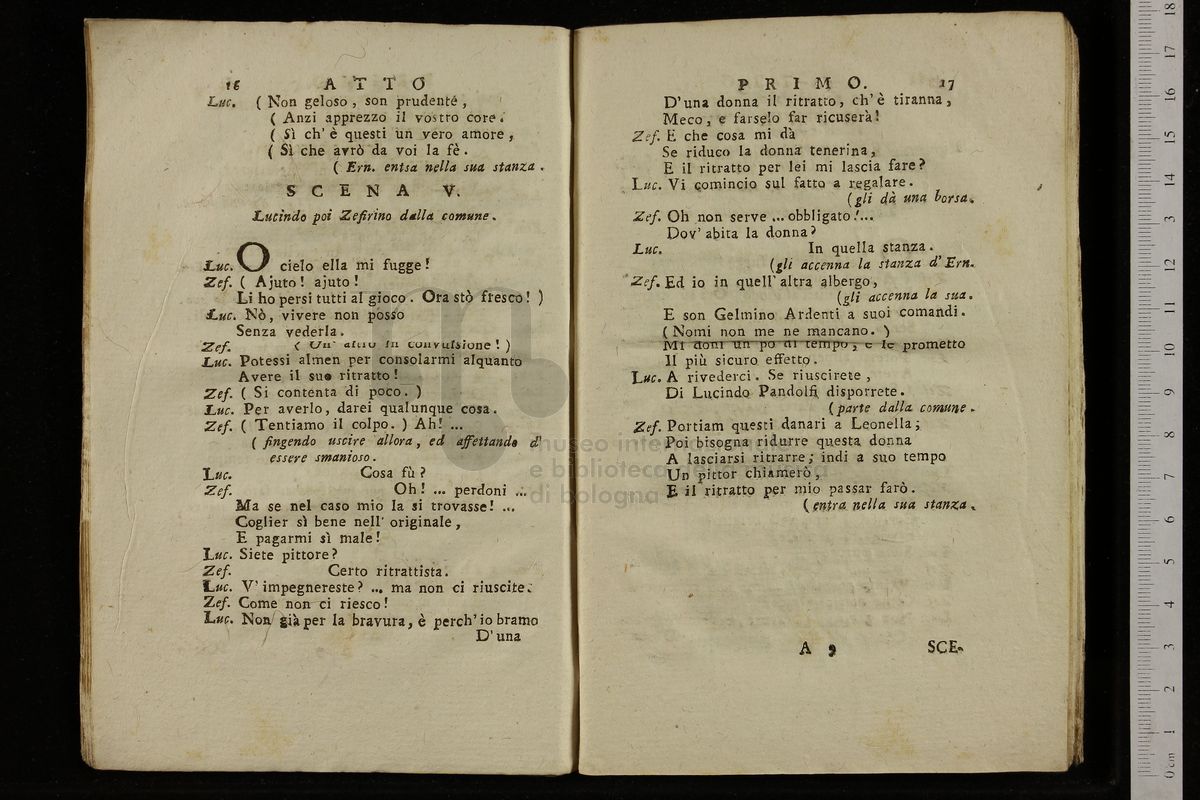 16 ATTO
Luc. ( Non geloso, son prudente,
( Anzi apprezzo il vostro core.
( Sì ch'è questi un vero amore,
( Sì che avrò da voi la fè.
( Ern. entsa nella sua stanza.
SCENA V.
Lucindo poi Zefirino dalla comune.
Luc. O cielo ella mi fugge!
Zef. ( Ajuto! ajuto!
Li ho persi tutti al gioco. Ora stò fresco! )
Luc. Nò, vivere non posso
Senza vederla.
Zef. ( Un' altro in convulsione! )
Luc. Potessi almen per consolarmi alquanto
Avere il suo ritratto!
Zef. ( Si contenta di poco. )
Luc. Per averlo, darei qualunque cosa.
Zef. ( Tentiamo il colpo. ) Ah! ...
( fingendo uscire allora, ed affettando d'
essere smanioso.
Luc. Cosa fù?
Zef. Oh! ... perdoni ...
Ma se nel caso mio la si trovasse! ...
Coglier sì bene nell' originale,
E pagarmi sì male!
Luc. Siete pittore?
Zef. Certo ritrattista.
Luc. V' impegnereste? ... ma non ci riuscite.
Zef. Come non ci riesco!
Luc. Non già per la bravura, è perch'io bramo
D'una
PRIMO. 17
D'una donna il ritratto, ch'è tiranna,
Meco, e farselo far ricuserà!
Zef. E che cosa mi dà
Se riduco la donna tenerina,
E il ritratto per lei mi lascia fare?
Luc. Vi comincio sul fatto a regalare.
(gli dà una borsa.
Zef. Oh non serve ... obbligato!...
Dov' abita la donna?
Luc. In quella stanza.
(gli accenna la stanza d' Ern.
Zef. Ed io in quell' altra albergo,
(gli accenna la sua.
E son Gelmino Ardenti a suoi comandi.
(Nomi non me ne mancano. )
Mi doni un po di tempo, e le prometto
Il più sicuro effetto.
Luc. A rivederci. Se riuscirete,
Di Lucindo Pandolfi disporrete.
(parte dalla comune.
Zef. Portiam questi danari a Leonella;
Poi bisogna ridurre questa donna
A lasciarsi ritrarre; indi a suo tempo
Un pittor chiamerò,
E il ritratto per mio passar farò.
(entra nella sua stanza.
A 9 SCE-
museo
e biblioteca della
di bologna
0 cm 1 2 3 4 5 6 7 8 9 10 11 12 13 14 15 16 17 18